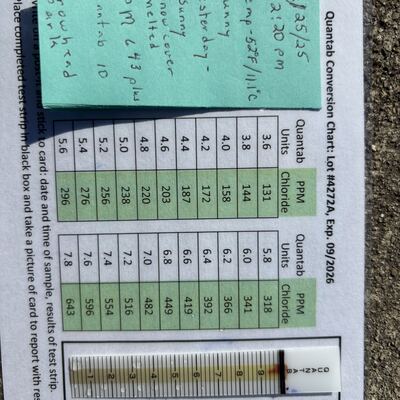 Quantab Conversion Chart: Lot #4272A, Exp. 09/2026
/25/25
2:20 pm
emp -52°F/11.1°C
unny
esterday -
sunny
now cover
melted
PM 643 plus
antab 10
rowhead
ark
Quantab Units PPM Chloride Quantab Units PPM Chloride
3.6 131 5.8 318
3.8 144 6.0 341
4.0 158 6.2 366
4.2 172 6.4 392
4.4 187 6.6 419
4.6 203 6.8 449
4.8 220 7.0 482
5.0 238 7.2 516
5.2 256 7.4 554
5.4 276 7.6 596
5.6 296 7.8 643
and stick to card: date and time of sample, results of test strip.
lace completed test strip in black box and take a picture of card to report with res
QUANTAB
9 8 7 6 5 4 3 2 1